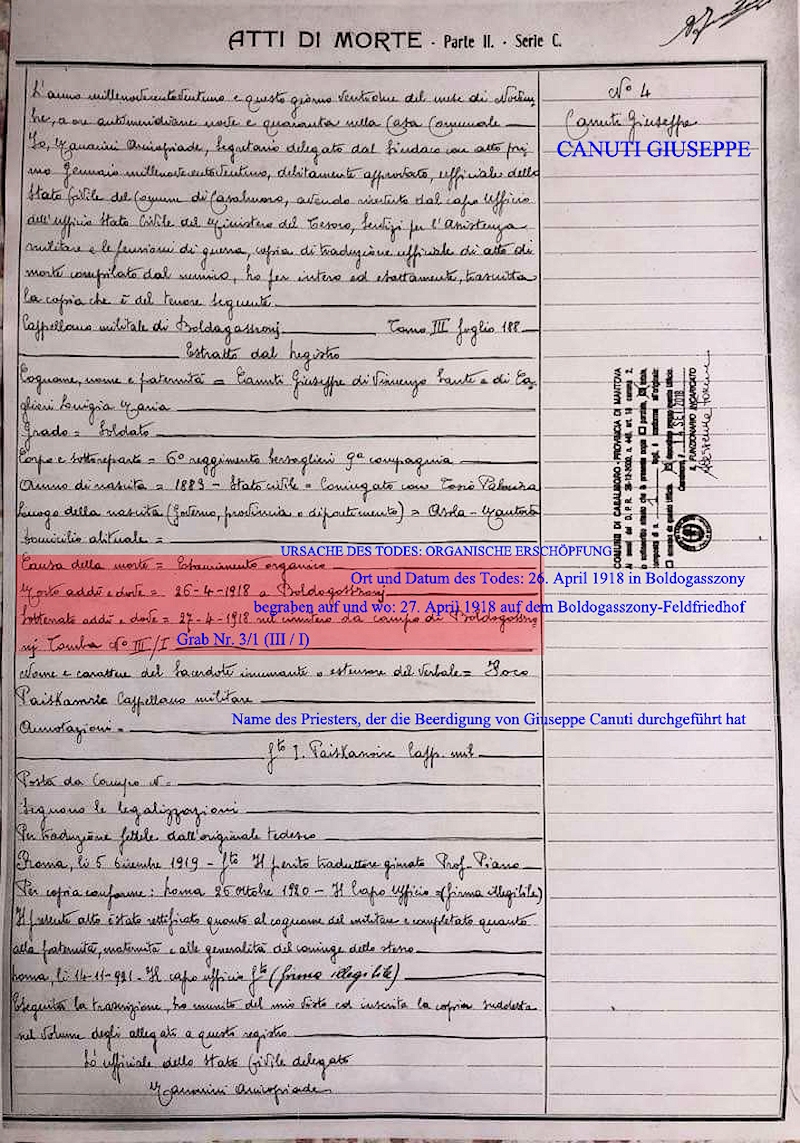 ATTI DI MORTE - Parte II. - Serie C.
L'anno millenovecentoventuno e questo giorno ventidue del mese di Novem-
bre, a ore antimeridiane nove e quaranta nella Casa Comunale
Io, Zanarini, Segretario delegato dal Sindaco con atto pri
mo Gennaio millenovecentoventuno, debitamente approvato, ufficiale dello
Stato Civile del Comune di Casalmoro, avendo ricevuto dal capo Ufficio
dell'ufficio Stato Civile del Ministero del Tesoro, Servizi per l'Assistenza
militare e le pensioni di guerra, copia di traduzione ufficiale di atto di
morte compilato dal nemico, ho per intero ed esattamente, trascritta
la copia che è del tenore seguente
Cappellano militale di Boldogassonj Tomo III foglio 188
Estratto dal registro
Cognome, nome e paternità = Canuti Giuseppe di Vincenzo Sante e di Ca-
glieri Luigia Maria
Grado = Soldato
Corpo e sottoreparto = 6° reggimento Bersaglieri 9ª compagnia
Anno di nascita = 1883 - Stato civile = Coniugato con
Luogo della nascita (Governo, provincia o dipartimento) = Asola - Mantova
Domicilio abituale =
Causa della morte = Esaurimento organico
Morto addì e dove = 26-4-1918 a Boldogasszonj
Sottenato addì e dove = 27-4-1918 nel cimitero da campo di Boldogasszo
nj Tomba N° III/I
Nome e carattere del Sacerdote inumante o estensore del verbale =
Cappellano militare
Annotazioni =
fto I. Capp. mil.
Posta da Campo N. =
Seguono le legalizzazioni
Per traduzione fedele dall'originale tedesco
Roma, lì 5 Dicembre 1919 - fto Il perito traduttore giurato Prof. Piano
Per copia conforme: Roma 26 Ottobre 1920 - Il Capo Ufficio = (firma illegibile)
Il presente atto è stato rettificato quanto al cognome del militare e completato quanto
alla paternità, maternità e alle generalità del coniuge dello stesso
Roma, lì 14-11-921 - Il capo ufficio fto (firma illegibile)
Eseguita la trascrizione, ho munito del mio visto ed inserita la copia suddetta
nel volume degli allegati a questo registro
Lo ufficiale dello Stato Civile delegato
Zanarini
N° 4
Canuti Giuseppe
CANUTI GIUSEPPE
COMUNE DI CASALMORO - PROVINCIA DI MANTOVA
IL FUNZIONARIO INCARICATO
URSACHE DES TODES: ORGANISCHE ERSCHÖPFUNG
Ort und Datum des Todes: 26. April 1918 in Boldogasszony
begraben auf und wo: 27. April 1918 auf dem Boldogasszony-Feldfriedhof
Grab Nr. 3/1 (III / I)
Name des Priesters, der die Beerdigung von Giuseppe Canuti durchgeführt hat